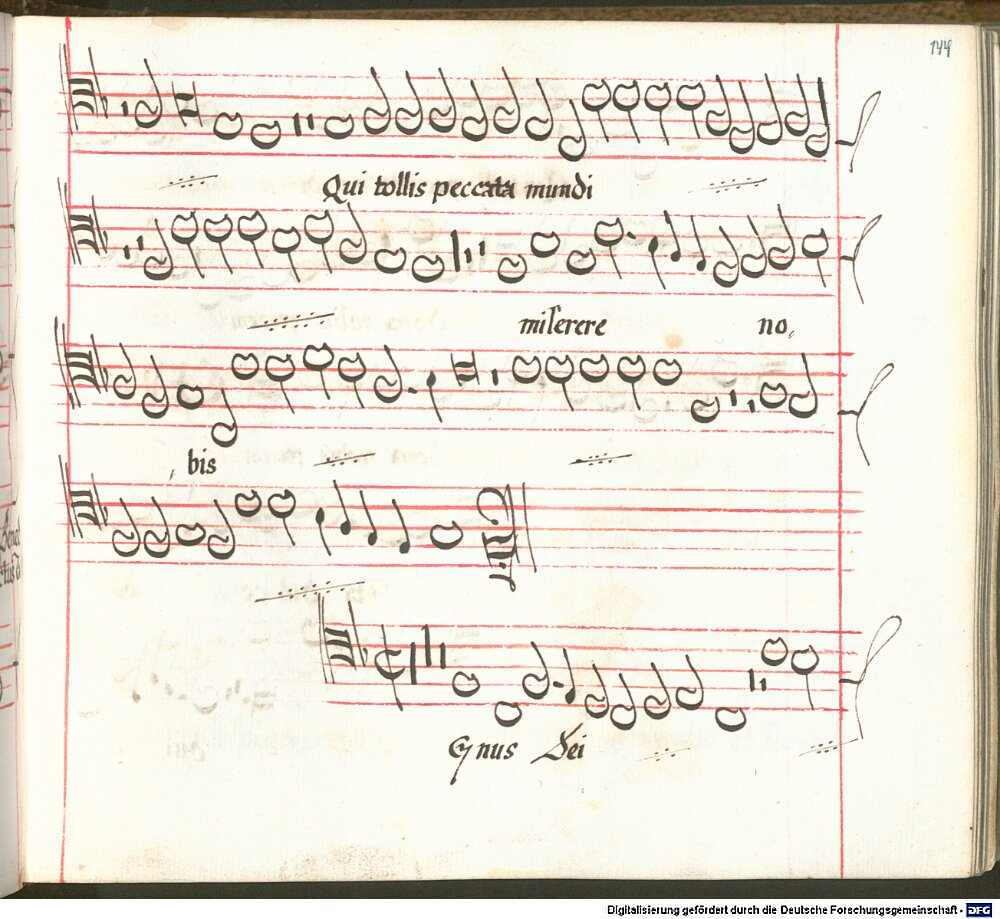 144
Qui tollis peccata mundi
miserere no-
bis
Gnus Dei
Digitalisierung gefördert durch die Deutsche Forschungsgemeinschaft - DFG